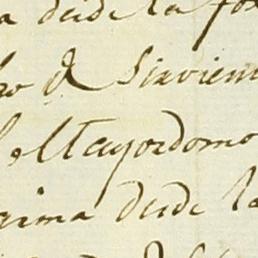 a desde la fo
ro D. Sirvien
l Mayordomo
rima desde la